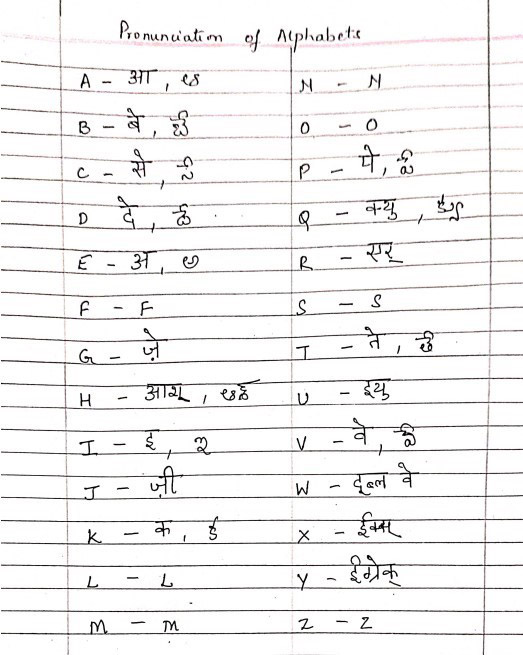 Pronunciation of Alphabets
A - आ, ఆ
B - बे, బే
C - से, సే
D दे, దే
E - अ, అ
F - F
G - ज़े
H - आश,
I - इ, ఇ
J - ज़ी
K - क, క
L - L
M - m
N - N
O - O
P - पे, పే
Q - क्यु, క్యు
R - एर्
S - S
T - ते, తే
U - इयु
V - वे, వే
W - दूब्ल वे
X - ईक्स
Y - ईग्रेक्
Z - Z